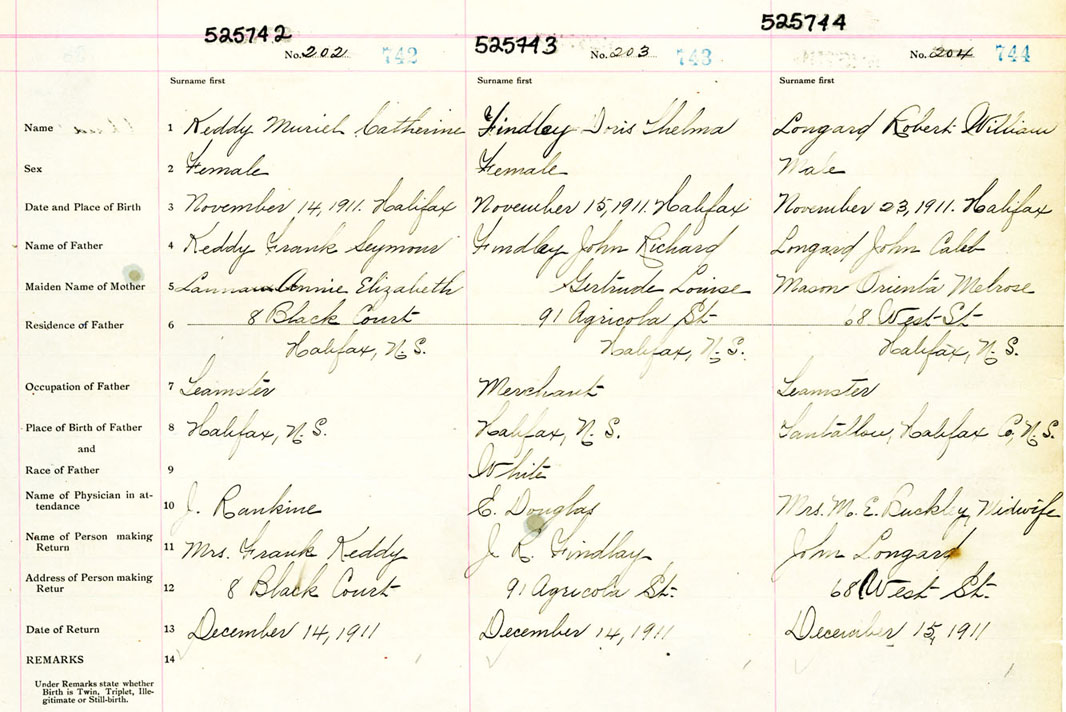 525742 525743 525744
No. 202 742 No. 203 743 No. 204 744
Surname first Surname first Surname first
Name 1 Keddy Muriel Catherine Findley Doris Thelma Longard Robert William
Sex 2 Female Female Male
Date and Place of Birth 3 November 14, 1911. Halifax November 15, 1911. Halifax November 23, 1911. Halifax
Name of Father 4 Keddy Frank Seymour Findley John Richard Longard John Caleb
Maiden Name of Mother 5 Annie Elizabeth Gertrude Louise Mason Orienta Melrose
Residence of Father 6 8 Black Court 91 Agricola St. 68 West St.
Halifax, N.S. Halifax, N.S. Halifax, N.S.
Occupation of Father 7 Teamster Merchant Teamster
Place of Birth of Father 8 Halifax, N.S. Halifax, N.S. Tantallon, Halifax Co, N.S.
and
Race of Father 9 White
Name of Physician in at-
tendance 10 J. Rankine E. Douglas Mrs. M. E. Buckley, Midwife
Name of Person making
Return 11 Mrs. Frank Keddy J. R. Findlay John Longard
Address of Person making
Retur 12 8 Black Court 91 Agricola St. 68 West St.
Date of Return 13 December 14, 1911 December 14, 1911 December 15, 1911
REMARKS 14
Under Remarks state whether
Birth is Twin, Triplet, Ille-
gitimate or Still-birth.